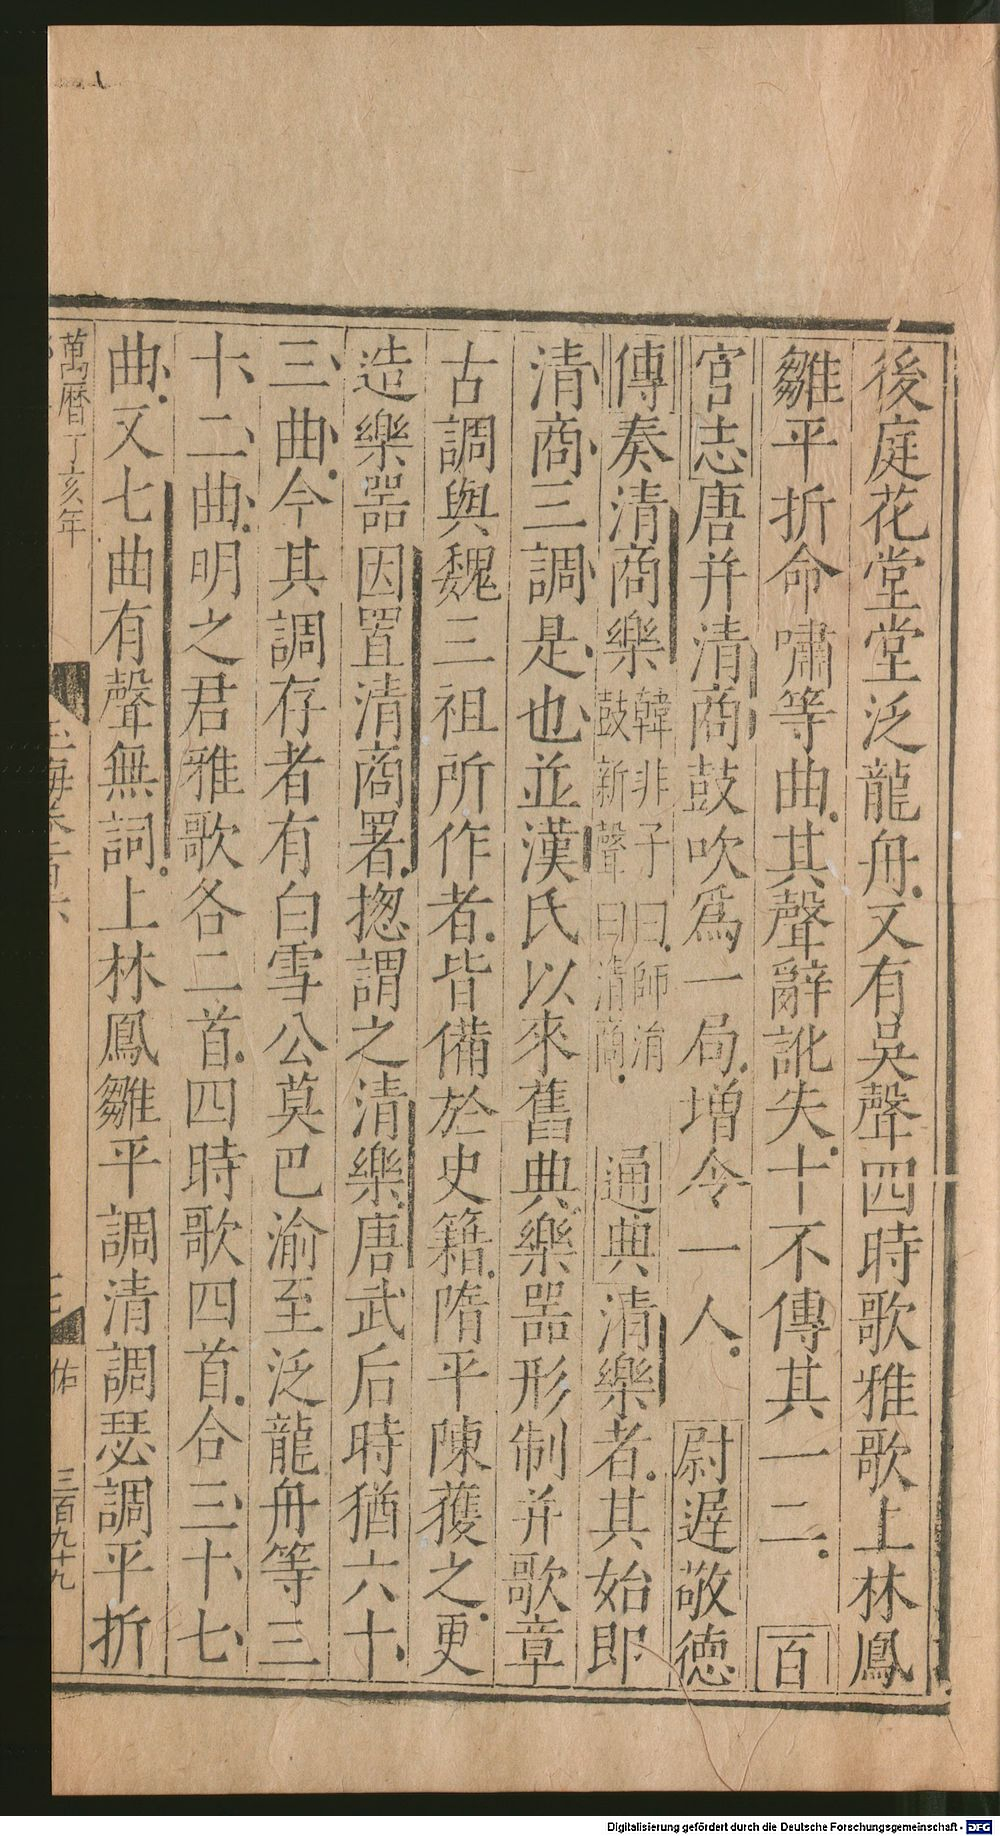 後庭花堂堂泛龍舟又有吳聲四時歌雅歌上林鳳
雛平折命嘯等曲其聲辭訛失十不傳其一二 百
官志唐并清商鼓吹爲一局增令一人 尉遲敬德
傳奏清商樂韓非子曰師涓
鼓新聲曰清商 通典清樂者其始即
清商三調是也並漢氏以來舊典樂器形制并歌章
古調與魏三祖所作者皆備於史籍隋平陳獲之更
造樂器因置清商署揔謂之清樂唐武后時猶六十
三曲今其調存者有白雪公莫巴渝至泛龍舟等三
十二曲明之君雅歌各二首四時歌四首合三十七
曲又七曲有聲無詞上林鳳雛平調清調瑟調平折
萬曆丁亥年
玉海卷一百六
佑 三百九十九
Digitalisierung gefördert durch die Deutsche Forschungsgemeinschaft - DFG